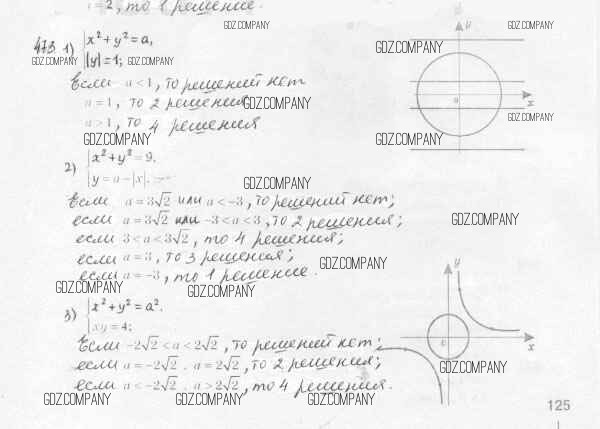 a = 2, то 1 решение.
GDZ.COMPANY GDZ.COMPANY
473 1) x² + y² = a, GDZ.COMPANY y
GDZ.COMPANY |y| = 1; GDZ.COMPANY
Если a < 1, то решений нет
a = 1, то 2 решения GDZ.COMPANY 0 x
a > 1, то 4 решения GDZ.COMPANY
GDZ.COMPANY GDZ.COMPANY
2) x² + y² = 9,
y = a − |x|. GDZ.COMPANY
Если a = 3√2 или a < −3, то решений нет;
если a = 3√2 или −3 < a < 3, то 2 решения; GDZ.COMPANY
если 3 < a < 3√2, то 4 решения;
если a = 3, то 3 решения; GDZ.COMPANY
если a = −3, то 1 решение. y
GDZ.COMPANY GDZ.COMPANY
3) x² + y² = a².
xy = 4;
Если −2√2 < a < 2√2, то решений нет; 0 x
если a = −2√2 . a = 2√2, то 2 решения; GDZ.COMPANY
если a < −2√2 . a > 2√2, то 4 решения.
GDZ.COMPANY GDZ.COMPANY GDZ.COMPANY 125